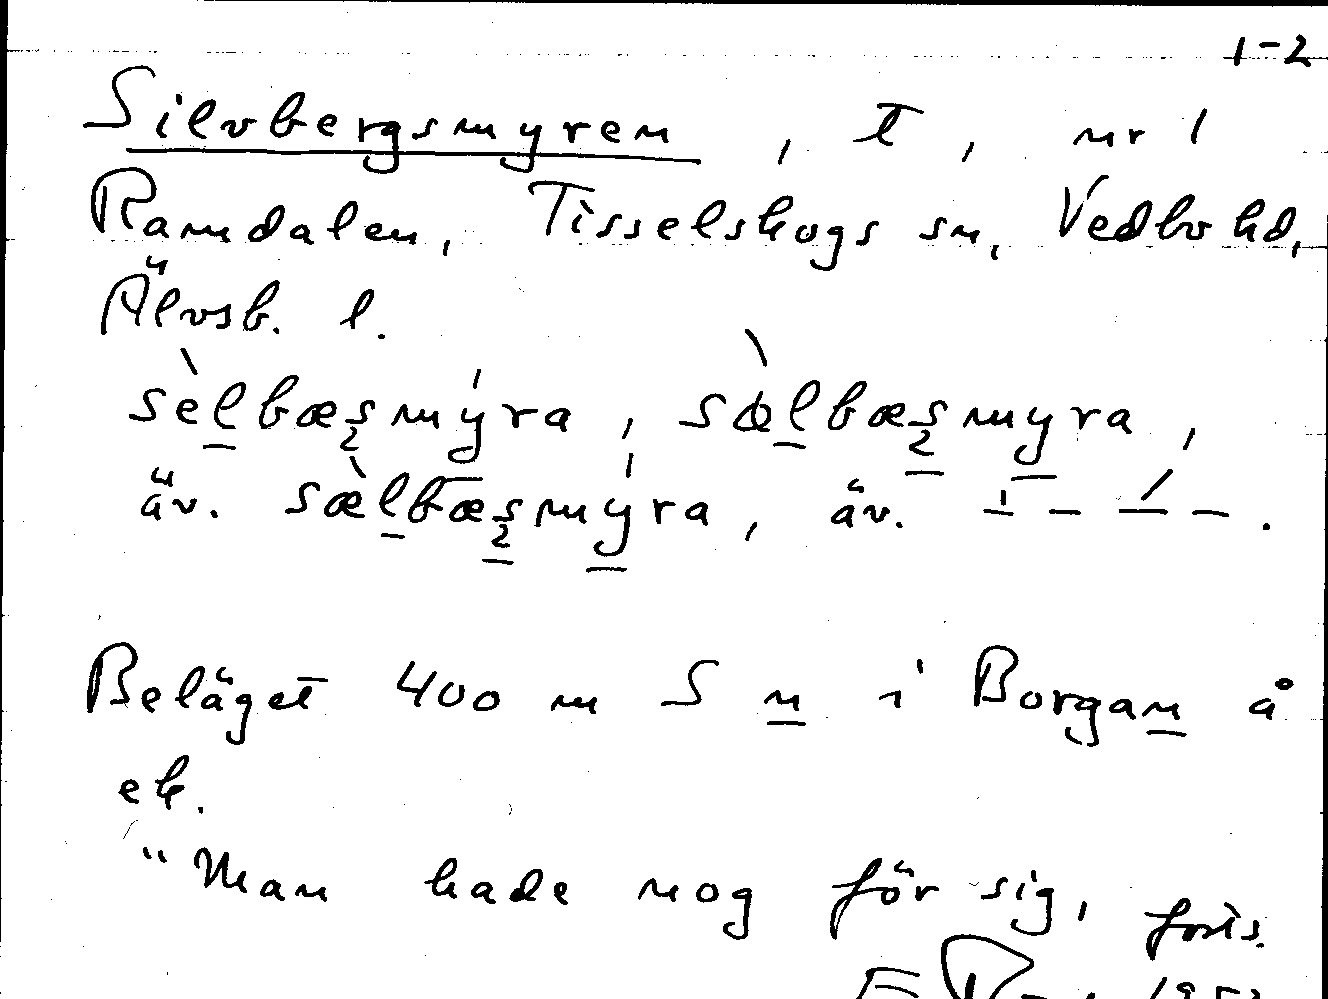 1-2
Silvbergsmyren, T, nr 1
Ramdalen, Tisselskogs sn, Vedbo hd,
Älvsb. l.
sèlbæsmýra, sælbæsmyra,
äv. sælbæsmýra, äv.
Beläget 400 m S n i Borgan å
ek.
"Man hade nog för sig, forts.